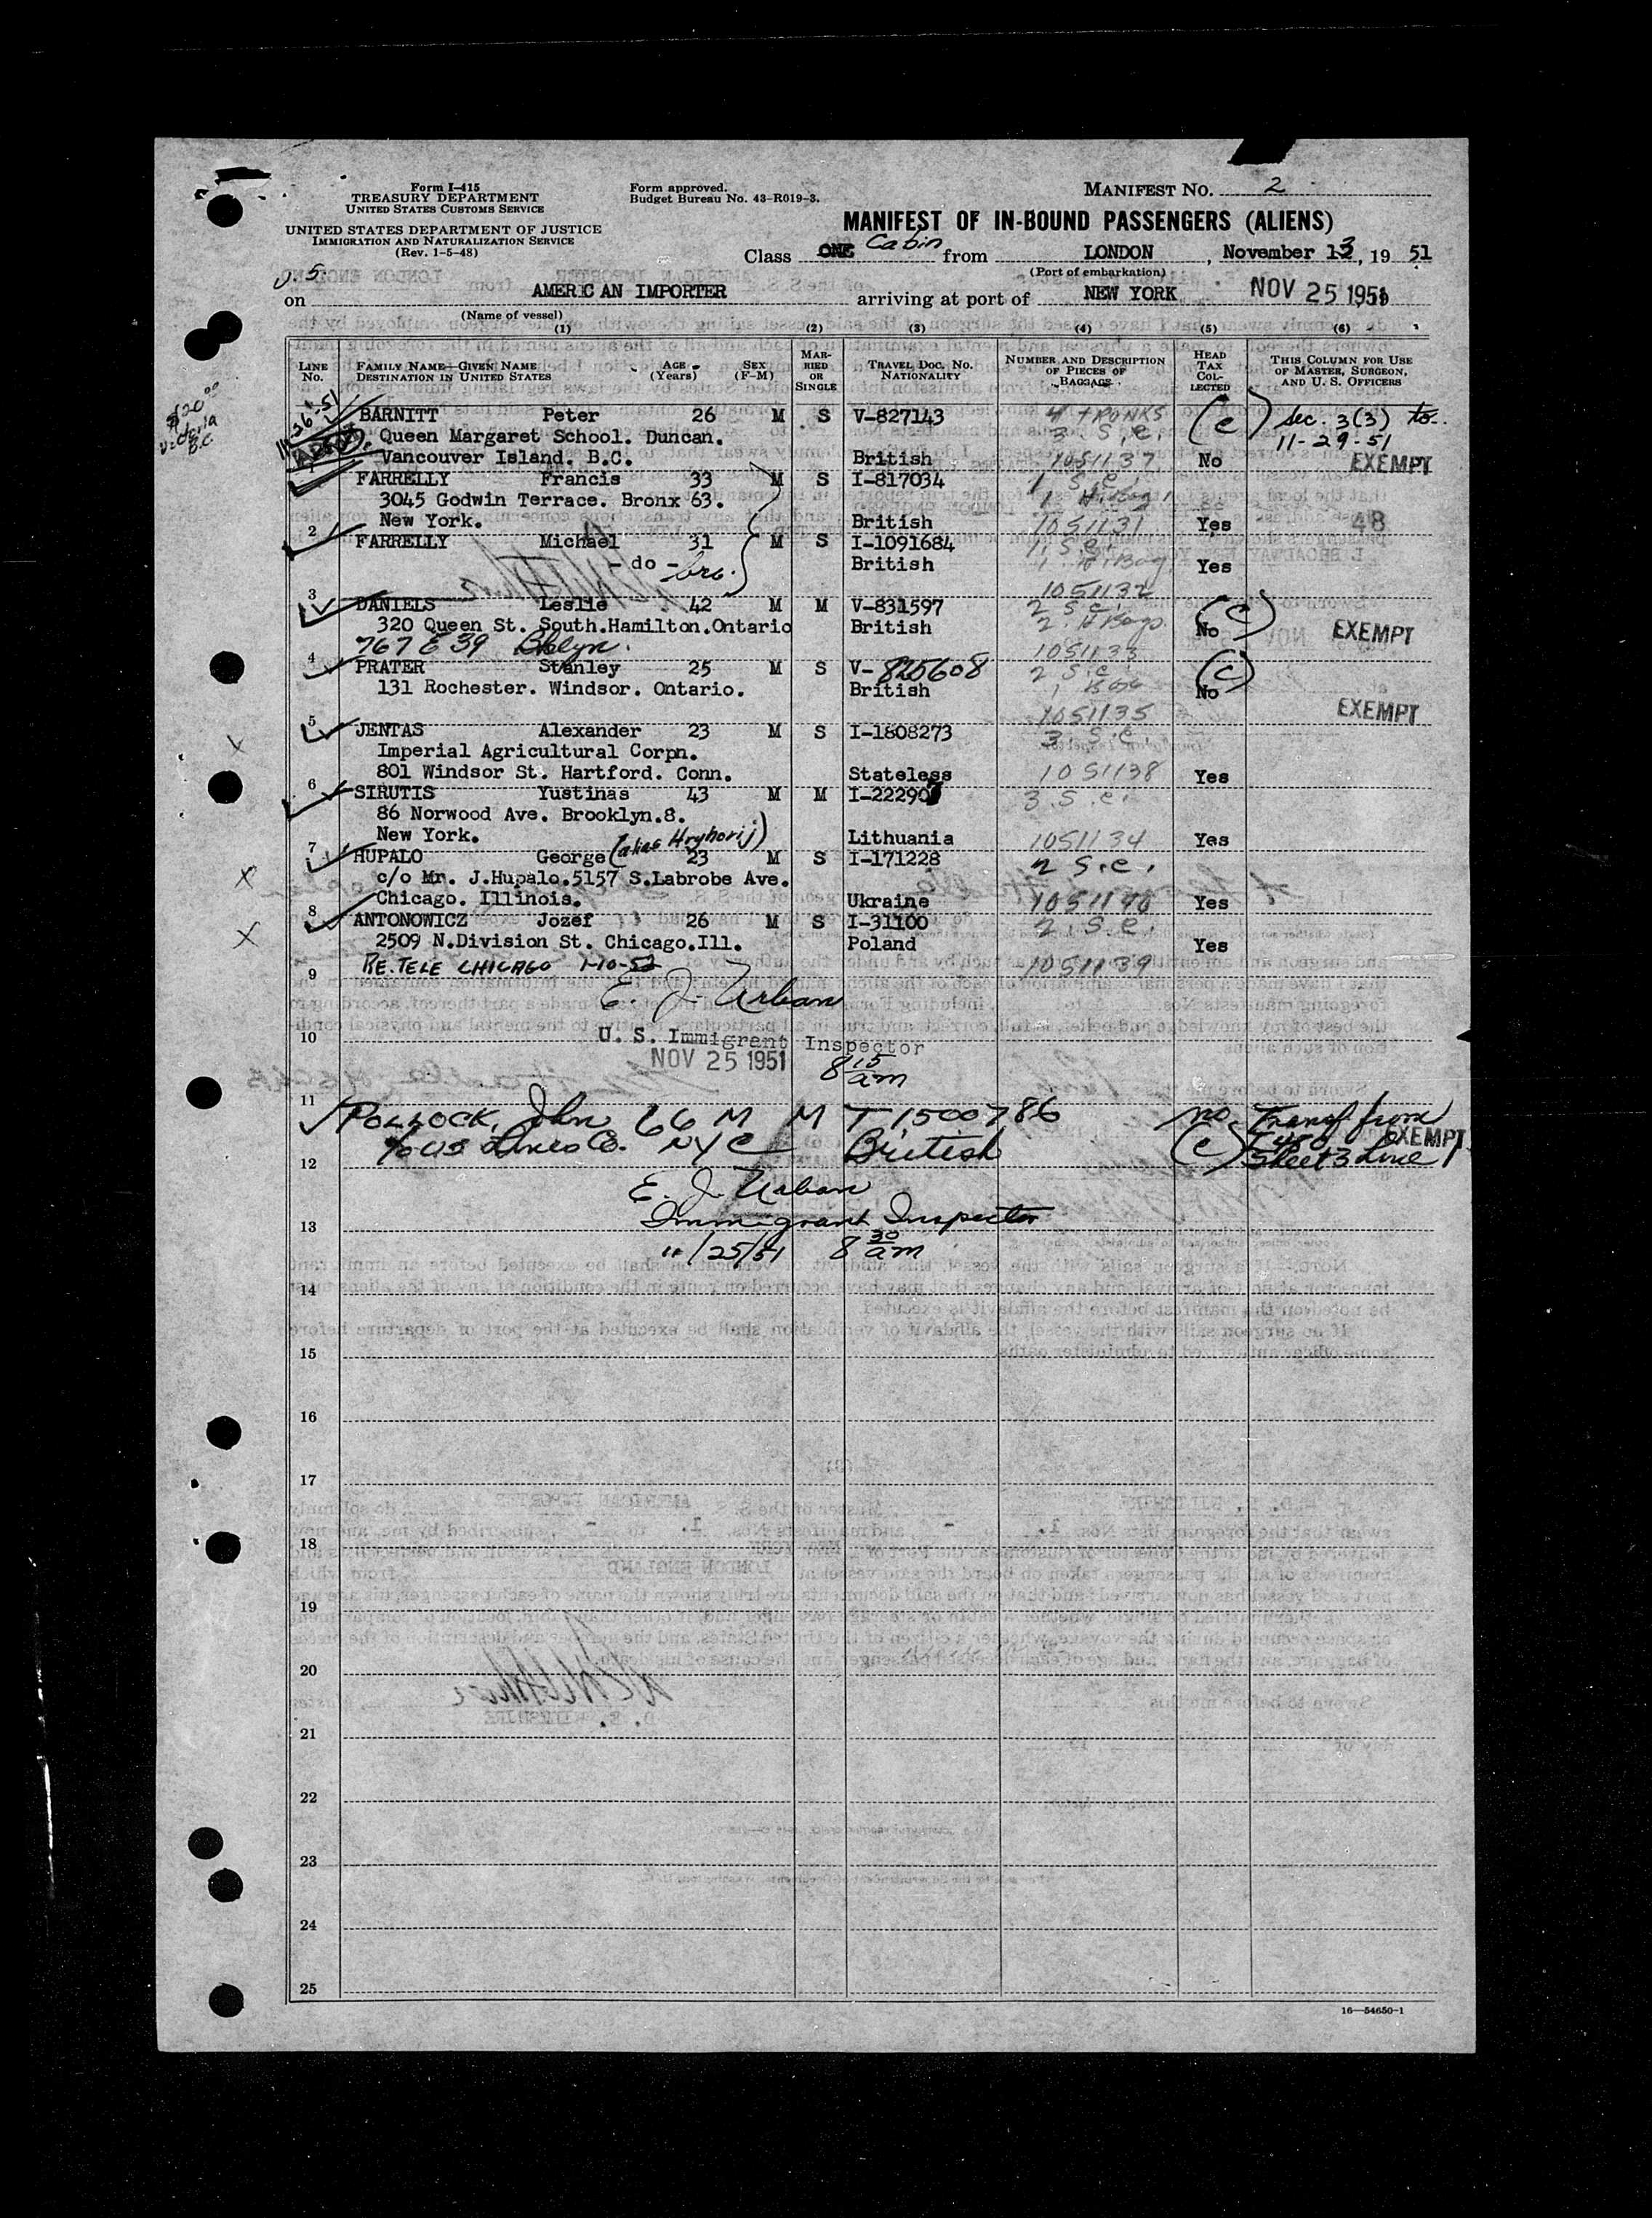 Form I-415
TREASURY DEPARTMENT
UNITED STATES CUSTOMS SERVICE
UNITED STATES DEPARTMENT OF JUSTICE
IMMIGRATION AND NATURALIZATION SERVICE
(Rev. 1-5-48)
Form approved.
Budget Bureau No. 43-R019-3.
MANIFEST NO. 2
MANIFEST OF IN-BOUND PASSENGERS (ALIENS)
Class ONE Cabin from LONDON, November 13, 19 51
(Port of embarkation)
U.S.
on AMERICAN IMPORTER arriving at port of NEW YORK NOV 25 1951
(Name of vessel)
(1) (2) (3) (4) (5) (6)
LINE No. FAMILY NAME—GIVEN NAME DESTINATION IN UNITED STATES AGE (Years) SEX (F-M) MARRIED OR SINGLE TRAVEL DOC. NO. NATIONALITY NUMBER AND DESCRIPTION OF PIECES OF BAGGAGE HEAD TAX COLLECTED THIS COLUMN FOR USE OF MASTER, SURGEON, AND U. S. OFFICERS
11-26-51
$20.00
Victoria
B.C.
BARNITT Peter 26 M S V-827143 4 trunks (c) Sec. 3(3) to
Queen Margaret School. Duncan. 3. S.C. 11-29-51
1 Vancouver Island. B.C. British 1051137 No EXEMPT
FARRELLY Francis 33 M S I-817034 1 S.C.
3045 Godwin Terrace. Bronx 63. 1 H.Bag
2 New York. British 1051131 Yes 48
FARRELLY Michael 31 M S I-1091684 1. S.C.
- do - bro. British 1 H.Bag Yes
3 1051132
DANIELS Leslie 42 M M V-831597 2 S.C. (c)
320 Queen St. South.Hamilton.Ontario British 2. H Bags. No EXEMPT
4 767 E 39 Bklyn. 1051133
PRATER Stanley 25 M S V-825608 2 S.C. (c)
131 Rochester. Windsor. Ontario. British 1 Box No
5 1051135 EXEMPT
JENTAS Alexander 23 M S I-1808273 3. S.C.
Imperial Agricultural Corpn.
6 801 Windsor St. Hartford. Conn. Stateless 1051138 Yes
SIRUTIS Yustinas 43 M M I-222907 3 S.C.
86 Norwood Ave. Brooklyn.8.
7 New York. Lithuania 1051134 Yes
HUPALO George (alias Hryhorij) 23 M S I-171228 2 S.C.
c/o Mr. J.Hupalo.5157 S.Labrobe Ave.
8 Chicago. Illinois. Ukraine 1051140 Yes
ANTONOWICZ Jozef 26 M S I-31100 2. S.C.
2509 N.Division St. Chicago.Ill. Poland Yes
9 RE. TELE CHICAGO 1-10-52 1051139
E. J. Urban
10 U. S. Immigrant Inspector
NOV 25 1951 8 15 am
11
POLLOCK, John 66 M M T 1500786 no Transf from
c/o US Lines Co. NYC British (c) EXEMPT
12 Sheet 3 Line
E. J. Urban
13 Immigrant Inspector
11/25/51 8 30 am
14
15
16
17
18
19
20
21
22
23
24
25
16—54650-1